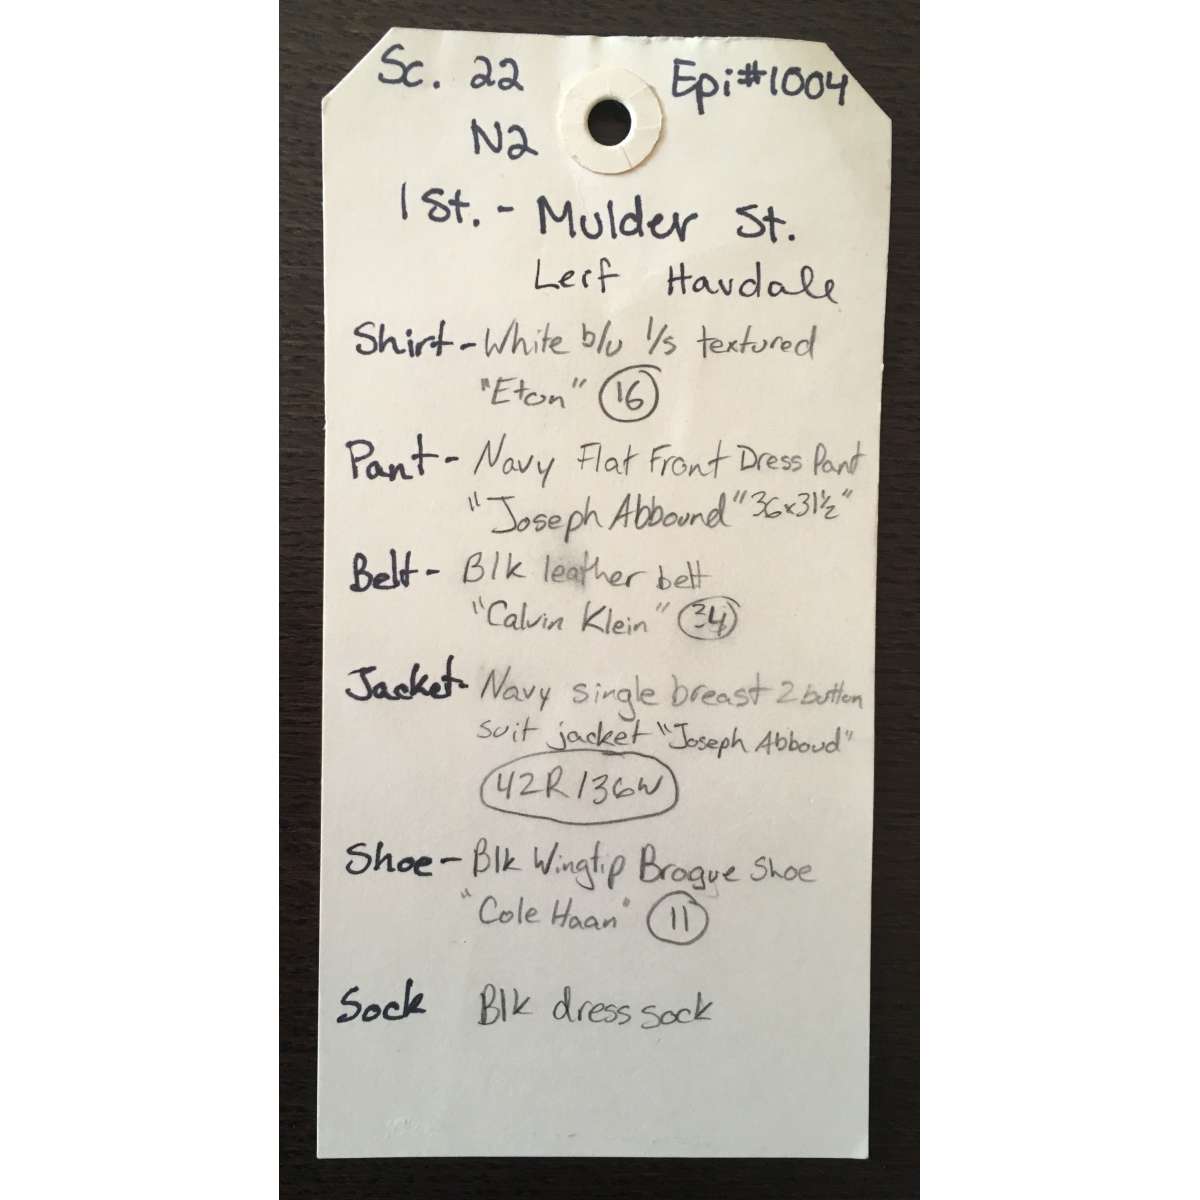 Sc. 22 Epi#1004
N2
1 St. - Mulder St.
Leif Havdale
Shirt - White b/u l/s textured
"Eton" 16
Pant - Navy Flat Front Dress Pant
"Joseph Abbound" 36x31½"
Belt - Blk leather belt
"Calvin Klein" 34
Jacket - Navy single breast 2 button
suit jacket "Joseph Abboud"
42R/36W
Shoe - Blk Wingtip Brogue Shoe
"Cole Haan" 11
Sock Blk dress sock